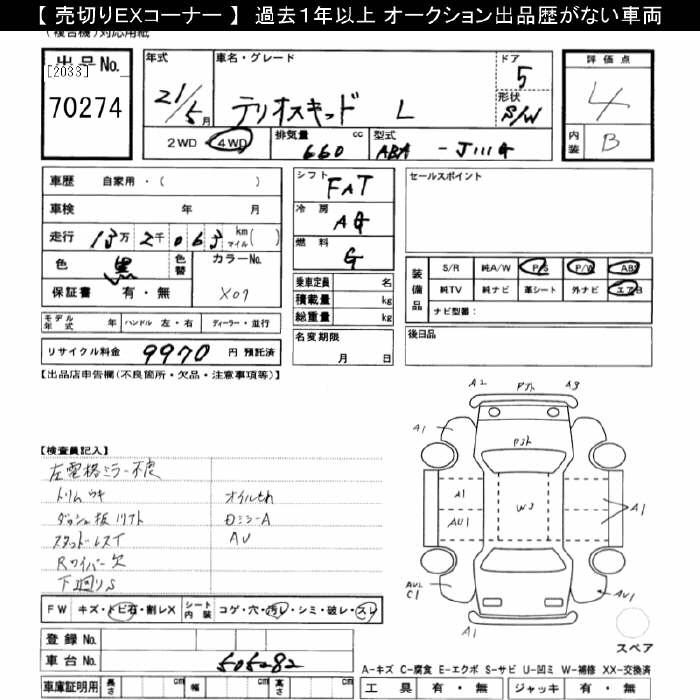 【 売切りEXコーナー 】 過去1年以上 オークション出品歴がない車両
(複合機)対応用紙
出品No.
[2033]
70274
年式
21/5月
車名・グレード
テリオスキッド L
ドア
5
形状
S/W
評価点
4
内装
B
2WD ・ 4WD
排気量 cc
660
型式
ABA - J111G
車歴 自家用・( )
車検 年 月
走行 13万 2千 063 km マイル( )
色 黒
色替
カラーNo.
X07
保証書 有・無
モデル年式 年
ハンドル 左・右
ディーラー・並行
リサイクル料金 9970 円 預託済
シフト FAT
冷房 AG
燃料 G
乗車定員 名
積載量 kg
総重量 kg
名変期限
月 日
セールスポイント
装備品
S/R 純A/W P/S P/W ABS
純TV 純ナビ 革シート 外ナビ エアB
ナビ型番:
後日品
【出品店申告欄(不良箇所・欠品・注意事項等)】
【検査員記入】
左電格ミラー不良
トリムウキ
ダッシュ板リフト
スタッドレスT
Rワイパー欠
下廻りS
オイルもれ
DミラーA
AU
A2 Pｽﾄ A3
A1
Pｽﾄ
A1
A1
AU1
W3
A1
AU2
C1
AU1
A1
スペア
FW キズ・トビ石・割レX
シート内装 コゲ・穴・汚レ・シミ・破レ・スレ
登録No.
車台No. 505282
車庫証明用 長さ cm 幅 cm 高さ cm
A-キズ C-腐食 E-エクボ S-サビ U-凹ミ W-補修 XX-交換済
工具 有・無 ジャッキ 有・無